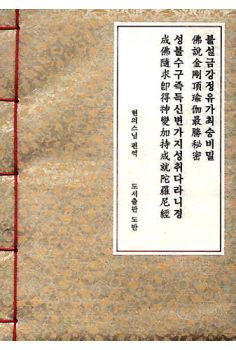 불설금강정유가최승비밀
佛說金剛頂瑜伽最勝秘密
성불수구즉득신변가지성취다라니경
成佛隨求卽得神變加持成就陀羅尼經
현의스님 편역
도서출판 도반